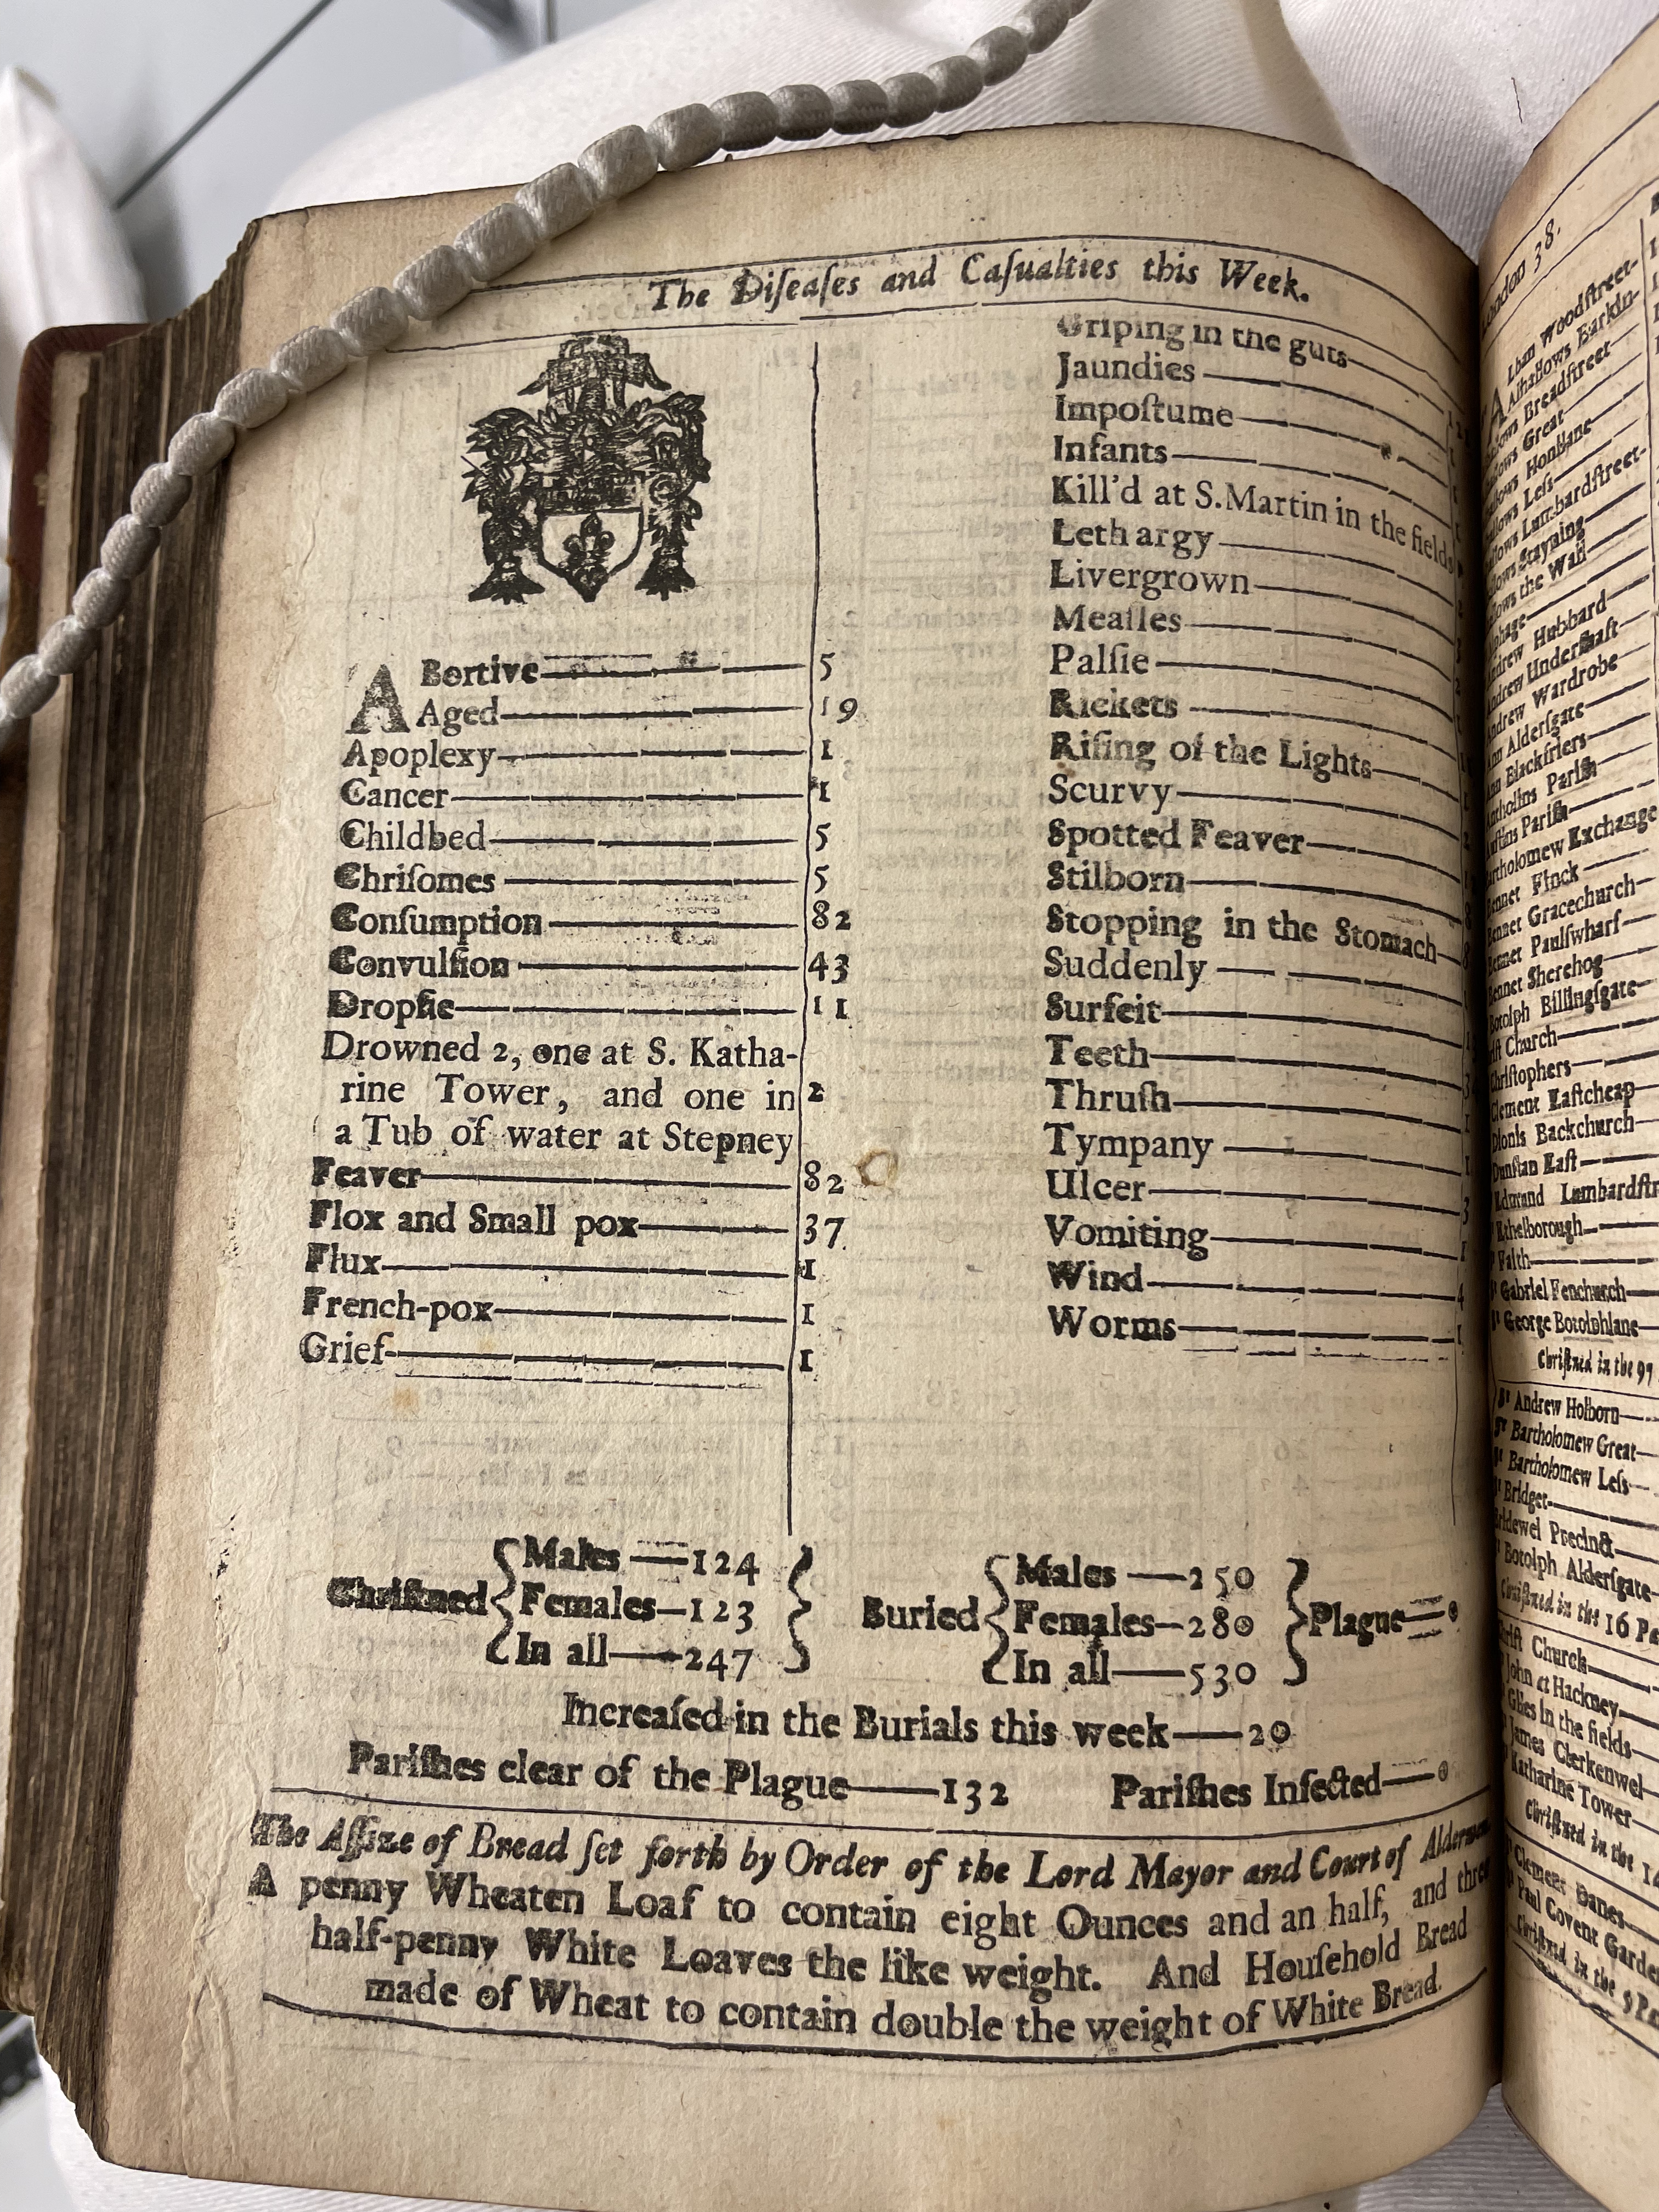 The Diſeaſes and Caſualties this Week.
ABortive 5
Aged 19
Apoplexy 1
Cancer 1
Childbed 5
Chriſomes 5
Conſumption 82
Convulſion 43
Dropſie 11
Drowned 2, one at S. Katha-
rine Tower, and one in 2
a Tub of water at Stepney
Feaver 82
Flox and Small pox 37
Flux 1
French-pox 1
Grief 1
Griping in the guts
Jaundies
Impoſtume
Infants
Kill'd at S. Martin in the fields
Lethargy
Livergrown
Meaſles
Palſie
Rickets
Riſing of the Lights
Scurvy
Spotted Feaver
Stilborn
Stopping in the Stomach
Suddenly
Surfeit
Teeth
Thruſh
Tympany
Ulcer
Vomiting
Wind 4
Worms 1
Chriſtned
Males 124
Females 123
In all 247
Buried
Males 250
Females 280
In all 530
Plague 0
Increaſed in the Burials this week 20
Pariſhes clear of the Plague 132 Pariſhes Infected 0
The Aſſize of Bread ſet forth by Order of the Lord Mayor and Court of
A penny Wheaten Loaf to contain eight Ounces and an half, and
half-penny White Loaves the like weight. And Houſehold Bread
made of Wheat to contain double the weight of White Bread.
London 38.
Woodſtreet-
Breadſtreet
Great
Honilane
Leſs
Lumbardſtreet-
Stayning
the Wall
Hubbard
Underſhaft
Wardrobe
Alderſgate
Blackfriers
Pariſh
Pariſh
Exchange
Finck
Gracechurch
Paulſwharf
Sherehog
Billingſgate
Church
Chriſtophers
Clement Eaſtcheap
Dionis Backchurch
Dunſtan Eaſt
Edmund
Ethelborough
Faith
Sᵗ Gabriel Fenchurch
Sᵗ George Botolphlane
Chriſtned in the 97
Sᵗ Andrew Holborn
Sᵗ Bartholomew Great
Sᵗ Bartholomew Leſs
Sᵗ Bridget
Bridewel Precinct
Botolph Alderſgate
Chriſtned in the 16
Church
John at Hackney
Giles in the fields
James Clerkenwel
Katharine Tower
Chriſtned in the
Clement Danes
Paul Covent
Chriſtned in the